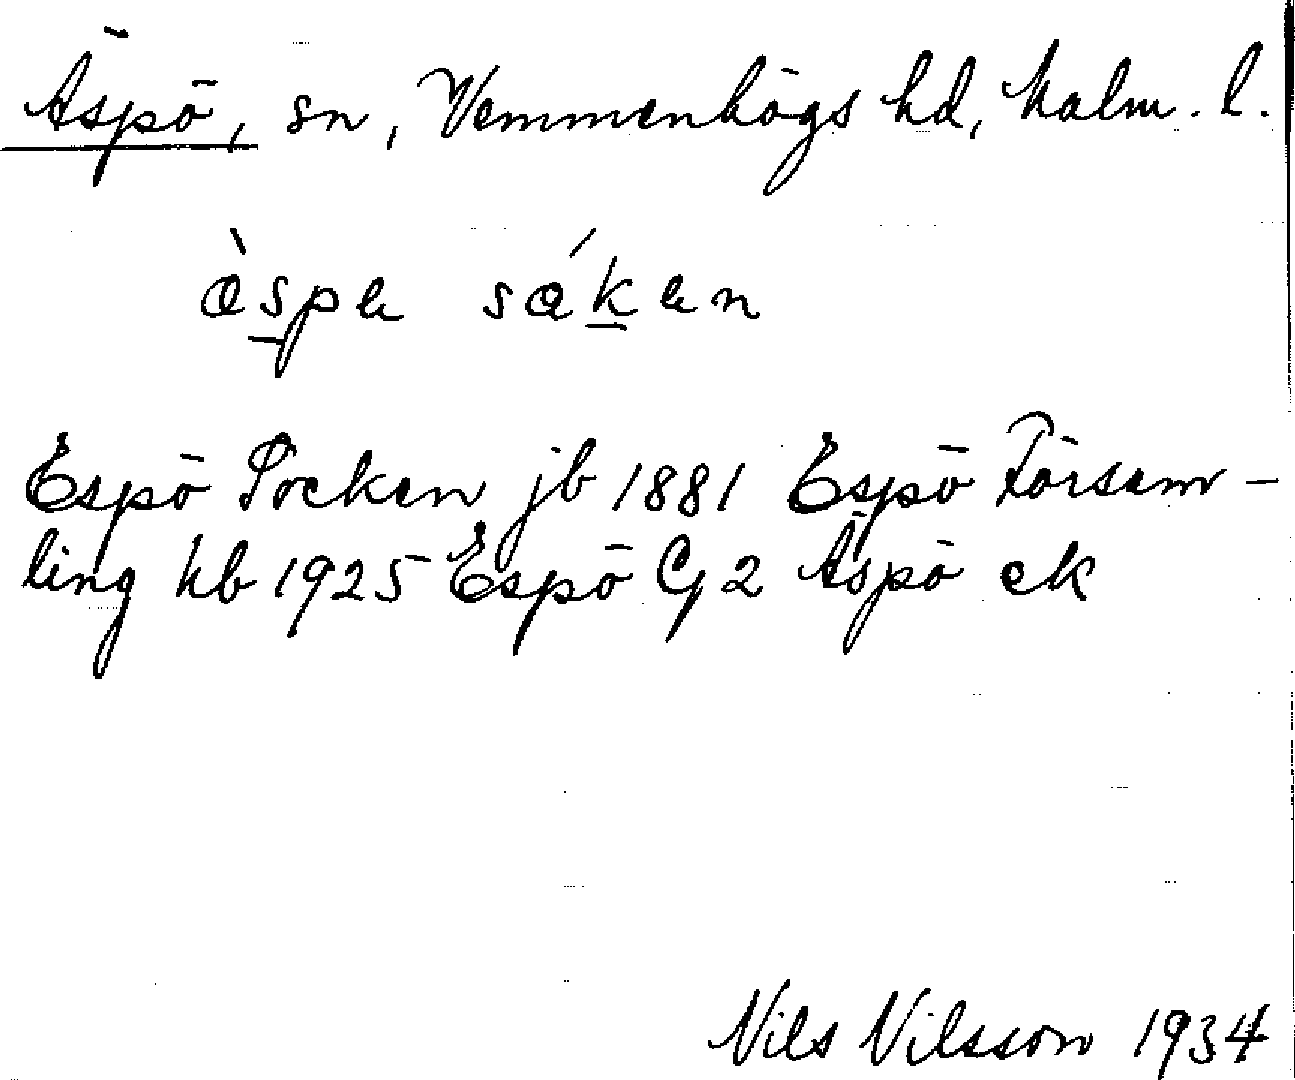 Äspö, sn, Vemmenhögs hd, Malm. l.
ὰspe sǻken
Espö Socken jb 1881 Espö Försam-
ling kb 1925 Espö G 2 Äspö ek
Nils Nilsson 1934